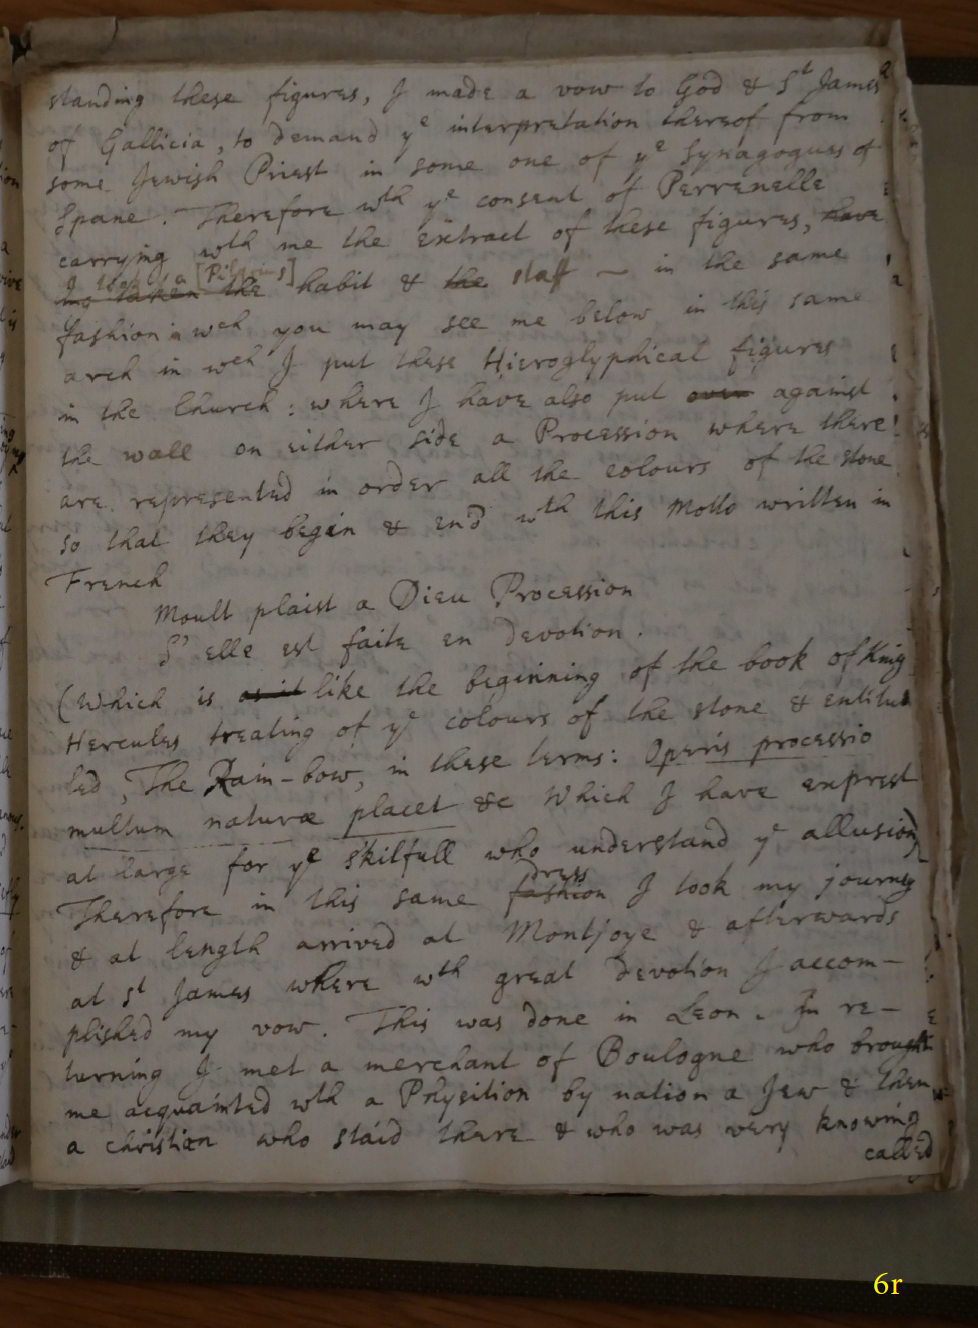 standing these figures, I made a vow to God & St James
of Gallicia, to demand ye interpretation thereof from
some Jewish Priest in some one of ye Synagogues of
Spane. Therefore wth ye consent of Perrenelle
carrying wth me the extract of these figures, have
I took a [Pilgrims]
ing taken the habit & the staff – in the same
fashion in wch you may see me below in this same
arch in wch I put these Hieroglyphical figures
in the Church: where I have also put over against
the wall on either side a Procession where there
are represented in order all the colours of the stone
so that they begin & end wth this Motto written in
French
Moult plaist a Dieu Procession
S' elle est faite en devotion.
(Which is as it like the beginning of the book of King
Hercules treating of ye colours of the stone & entitu
led, The Rain-bow, in these terms: Operis processio
multum naturæ placet &c Which I have exprest
at large for ye skilfull who understand ye allusion
dress
Therefore in this same fashion I took my journey
& at length arrived at Montjoye & afterwards
at St James where wth great devotion I accom-
plished my vow. This was done in Leon. In re-
turning I met a merchant of Boulogne who brought
me acquainted wth a Physition by nation a Jew & then
a christian who staid there & who was very knowing
called
6r